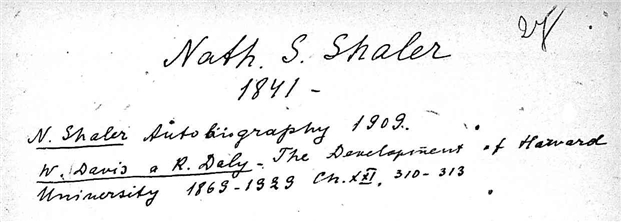 27
Nath. S. Shaler
1841 -
N. Shaler Autobiography 1909.
W. Davis a R. Daly - The Development of Harvard
University 1869-1929 Ch. XXI, 310-313